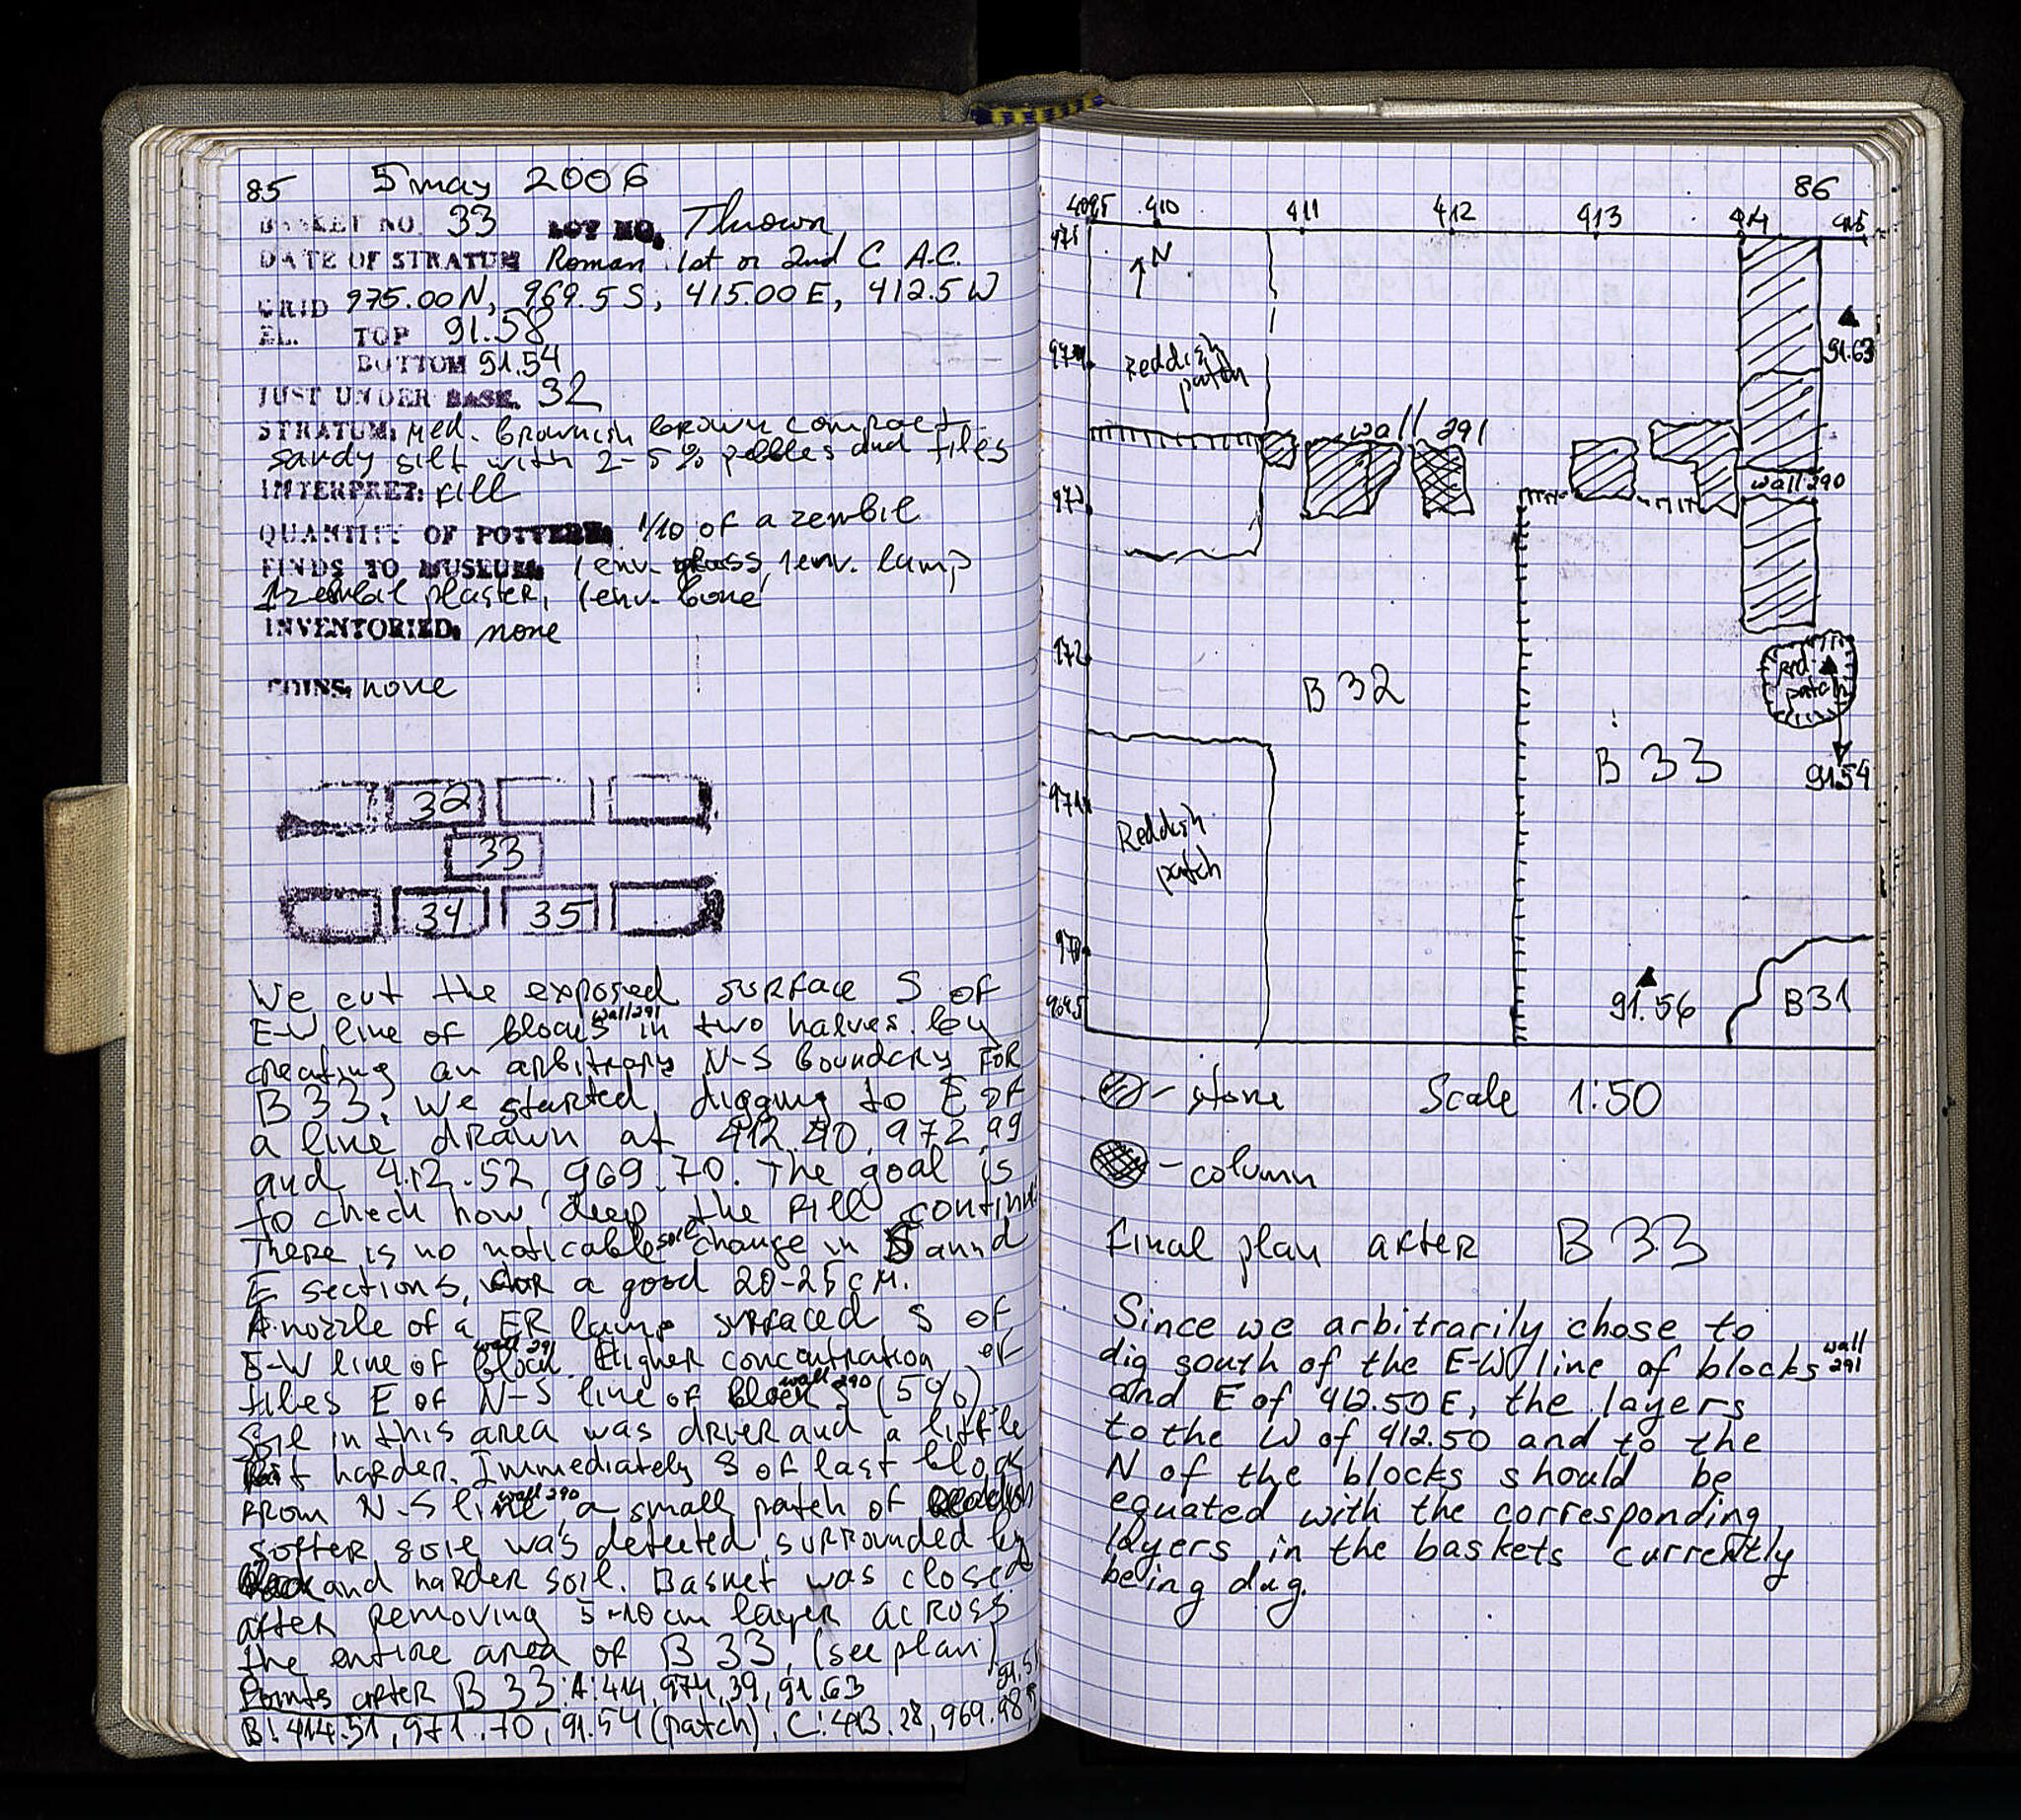 85 5 may 2006
BASKET NO. 33 LOT NO. Thrown
DATE OF STRATUM Roman 1st or 2nd C A.C.
GRID 975.00N, 969.5S, 415.00E, 412.5W
EL. TOP 91.58
BOTTOM 91.54
JUST UNDER BASK. 32
STRATUM: Med. brownish brown compact
sandy silt with 2-5% pebbles and tiles
INTERPRET: fill
QUANTITY OF POTTERY: 1/10 of a zembil
FINDS TO MUSEUM: 1 env. glass, 1 env. lamp
1 zembil plaster, 1 env. bone
INVENTORIED: none
COINS: none
32
33
34 35
We cut the exposed surface S of
E-W line of blocks wall 291 in two halves by
creating an arbitrary N-S boundary FOR
B 33. We started digging to E of
a line drawn at 412.40, 972.99
and 412.52, 969.70. The goal is
to check how deep the fill continues
There is no noticable soil change in S annd
E sections, for a good 20-25 cm.
A nozzle of a ER lamp surfaced S of
E-W line of block wall 291. Higher concentration of
tiles E of N-S line of blocks wall 290 (5%)
Soil in this area was drier and a little
bit harder. Immediately S of last block
from N-S line wall 290, a small patch of
softer soil was detected, surrounded by
and harder soil. Basket was closed
after removing 5-10 cm layer across
the entire area of B 33, (see plan)
Points after B 33: A: 414, 974.39, 91.63
B: 414.51, 971.70, 91.54 (patch), C: 413.28, 969.98
86
409.5 410 411 412 413 414 415
975
N
974
Reddish
patch
91.63
wall 291
973
wall 290
972
B 32
red.
patch
B 33
91.54
971
Reddish
patch
970
91.56
B31
969.5
- stone Scale 1:50
- column
Final plan after B 33
Since we arbitrarily chose to
dig south of the E-W line of blocks wall 291
and E of 412.50 E, the layers
to the W of 412.50 and to the
N of the blocks should be
equated with the corresponding
layers in the baskets currently
being dug.